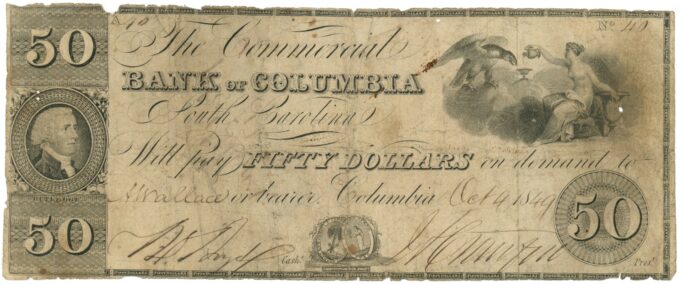 50
A
No 48
The Commercial
BANK OF COLUMBIA
South Carolina
Will pay FIFTY DOLLARS on demand to
A Wallace or bearer. Columbia Oct 4 1849
50
50
Cashr.
Prest.